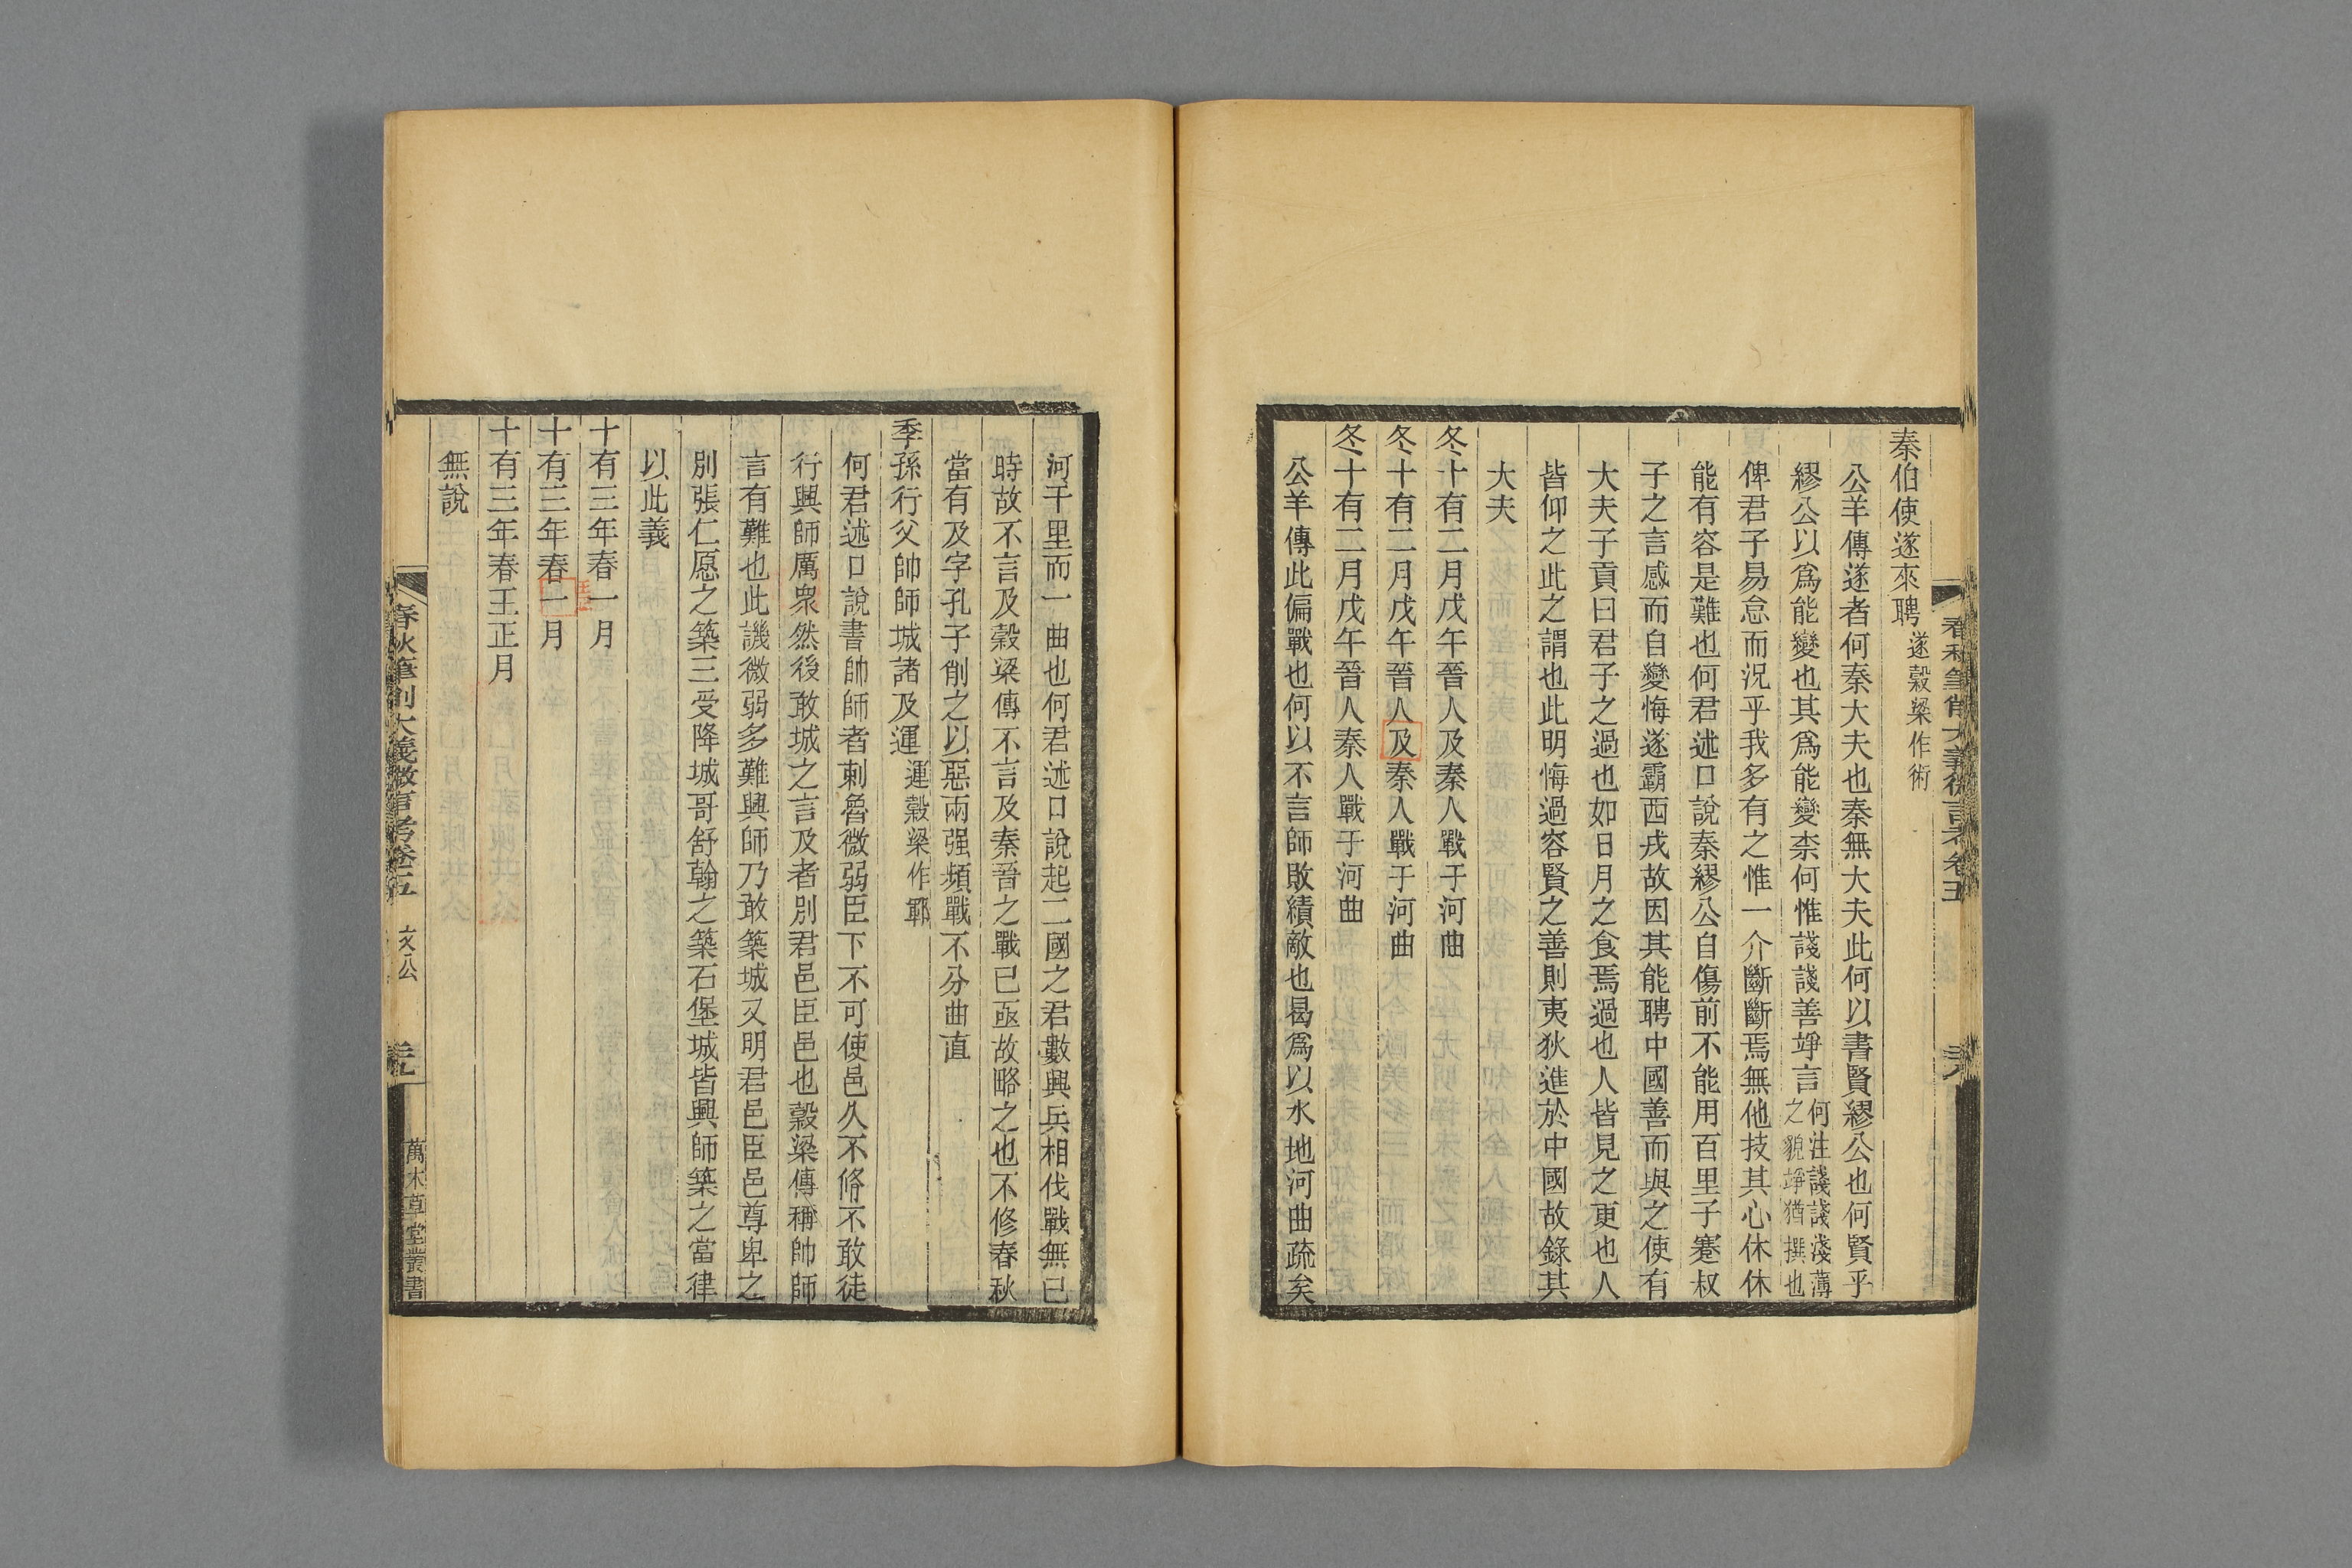 秦伯使遂來聘遂穀梁作術
公羊傳遂者何秦大夫也秦無大夫此何以書賢繆公也何賢乎
繆公以為能變也其為能變柰何惟諓諓善竫言何注諓諓淺薄之貌竫猶撰也
俾君子易怠而況乎我多有之惟一介斷斷焉無他技其心休休
能有容是難也何君述口說秦繆公自傷前不能用百里子蹇叔
子之言感而自變悔遂霸西戎故因其能聘中國善而與之使有
大夫子貢曰君子之過也如日月之食焉過也人皆見之更也人
皆仰之此之謂也此明悔過容賢之善則夷狄進於中國故錄其
大夫
冬十有二月戊午晉人及秦人戰于河曲
冬十有二月戊午晉人及秦人戰于河曲
冬十有二月戊午晉人秦人戰于河曲
公羊傳此偏戰也何以不言師敗績敵也曷為以水地河曲疏矣
春秋筆削大義微言考卷五
河千里而一曲也何君述口說起二國之君數興兵相伐戰無已
時故不言及穀梁傳不言及秦晉之戰已亟故略之也不修春秋
當有及字孔子削之以惡兩强頻戰不分曲直
季孫行父帥師城諸及運運穀梁作鄆
何君述口說書帥師者刺魯微弱臣下不可使邑久不脩不敢徒
行興師厲衆然後敢城之言及者別君邑臣邑也穀梁傳稱帥師
言有難也此譏微弱多難興師乃敢築城又明君邑臣邑尊卑之
別張仁愿之築三受降城哥舒翰之築石堡城皆興師築之當律
以此義
十有三年春一月
十有三年春一月
十有三年春王正月
無說
春秋筆削大義微言考卷五 文公 萬木草堂叢書